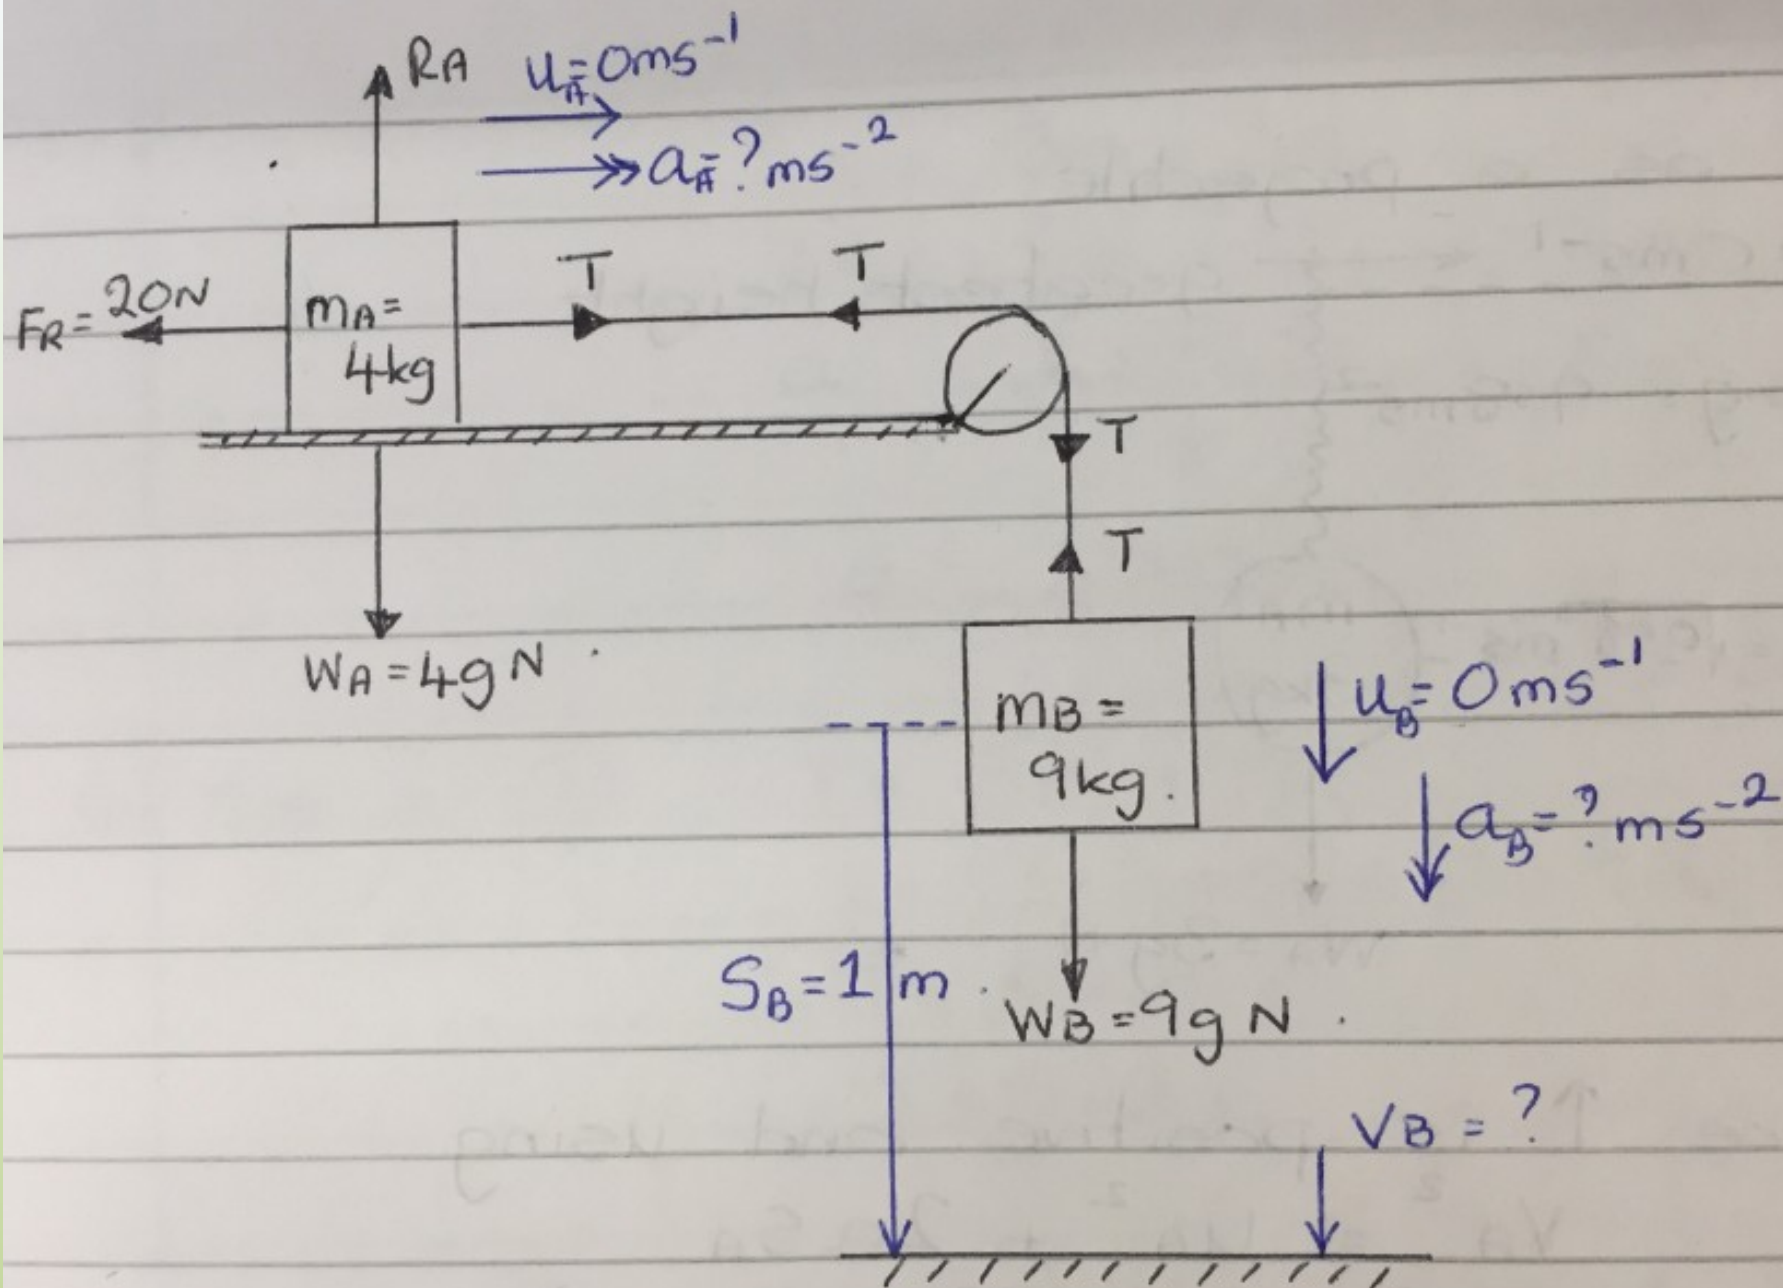 RA
uA=0ms⁻¹
aA=?ms⁻²
FR=20N
mA=
4kg
T
T
T
T
WA=4gN
mB=
9kg.
uB=0ms⁻¹
aB=?ms⁻²
SB=1m
WB=9gN
VB=?